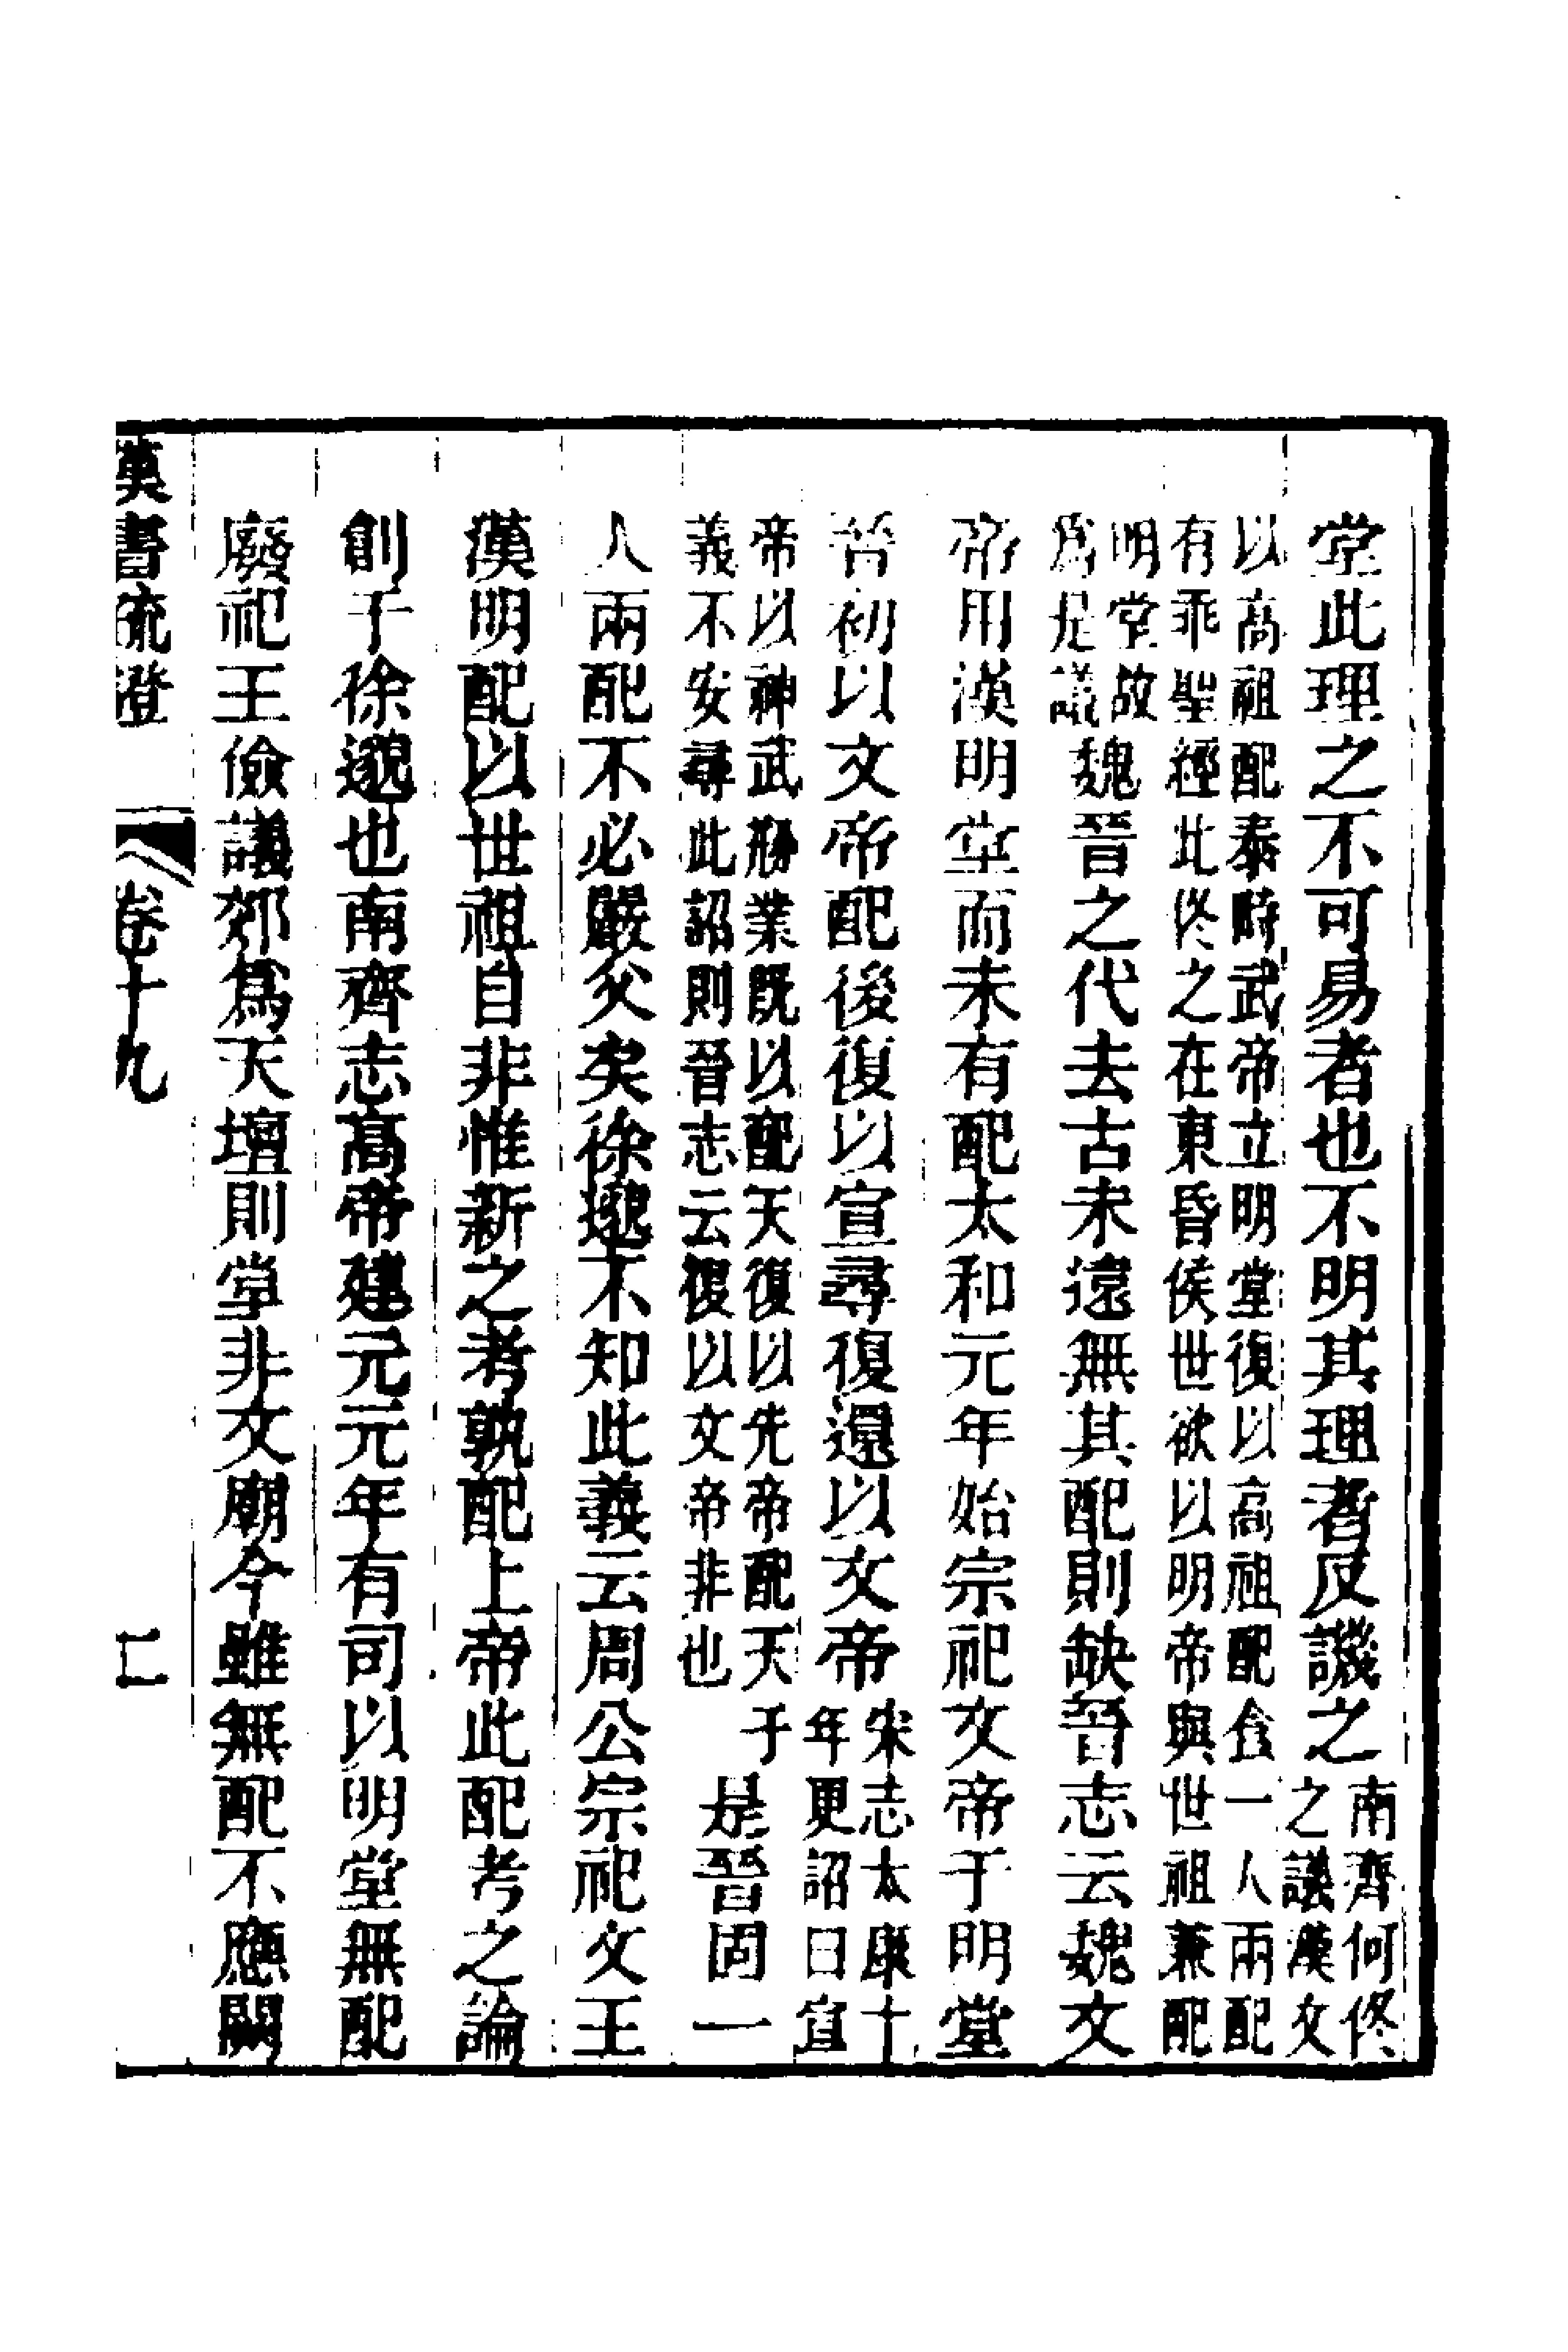 堂此理之不可易者也不明其理者反譏之南齊何佟
之議漢文
以高祖配泰畤武帝立明堂復以高祖配食一人兩配
有乖聖經此佟之在東昏侯世欲以明帝與世祖兼配
明堂故
爲是議魏晉之代去古未遠無其配則缺晉志云魏文
帝用漢明堂而未有配太和元年始宗祀文帝于明堂
晉初以文帝配後復以宣尋復還以文帝宋志太康十
年更詔曰宣
帝以神武刱業既以配天復以先帝配天于
義不安尋此詔則晉志云復以文帝非也是晉固一
人兩配不必嚴父矣徐邈不知此義云周公宗祀文王
漢明配以世祖自非惟新之考孰配上帝此配考之論
創于徐邈也南齊志高帝建元元年有司以明堂無配
廢祀王儉議郊爲天壇則堂非文廟今雖無配不應闕
漢書疏證 卷十九 二